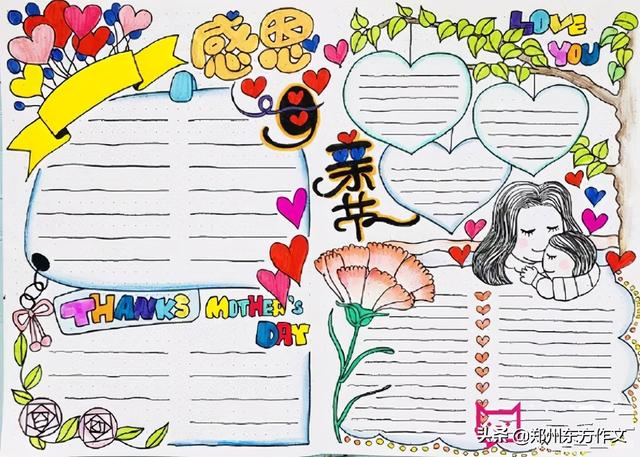 感恩
母
亲
节
LOVE
YOU
THANKS
MOTHER'S
DAY
头条 @郑州东方作文